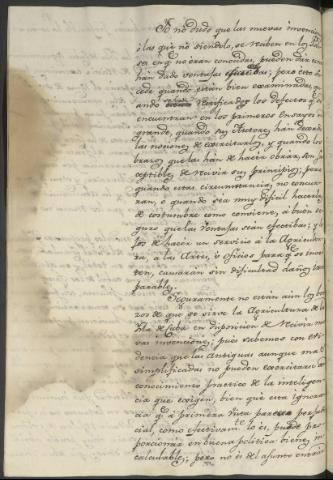 Yo no dudo que las nuevas invencion
ò las que nò siendolo, se reciben en los
ses en qe. no eran conocidas, pueden dar, ò en
hán dado ventajas efectibas; pero esto
cede quando están bien examinadas, qu
ando rectificados los defectos q. se
encuentran en los primeros ensayos
grande, quando sus Autores, han
las nociones de executarlas, y quando los
brazos que las hán de hacer obrar, son
ceptibles de recivir sus principios; pero
quando estas circunstancias no concur
ran, ò quando sea muy dificil hacerlas
de costumbre como conviene, à bien
guro que las ventajas sean efectibas; y
fos de hacer un servicio à la Agricultu
ra, à las Artes, ù oficios para qe. se inven
ten, causarán sin dificultad daños
parables.
Seguramente no están aún los bra
zos de que se sirve la Agricultura de la
Isla de Cuba en disposicion de recivir
vas invenciones; pues sabemos con evi
dencia que las Antiguas aunque
simplificadas no pueden executarse
conocimiento practico de la inteligen
cia que exigen, bien que esta ignoran
cia qe. à primera vista parece perju
cial, como efectivamte. lo es, puede pro
porcionar en buena politica bienes in
calculables; pero no es de asunto entrar